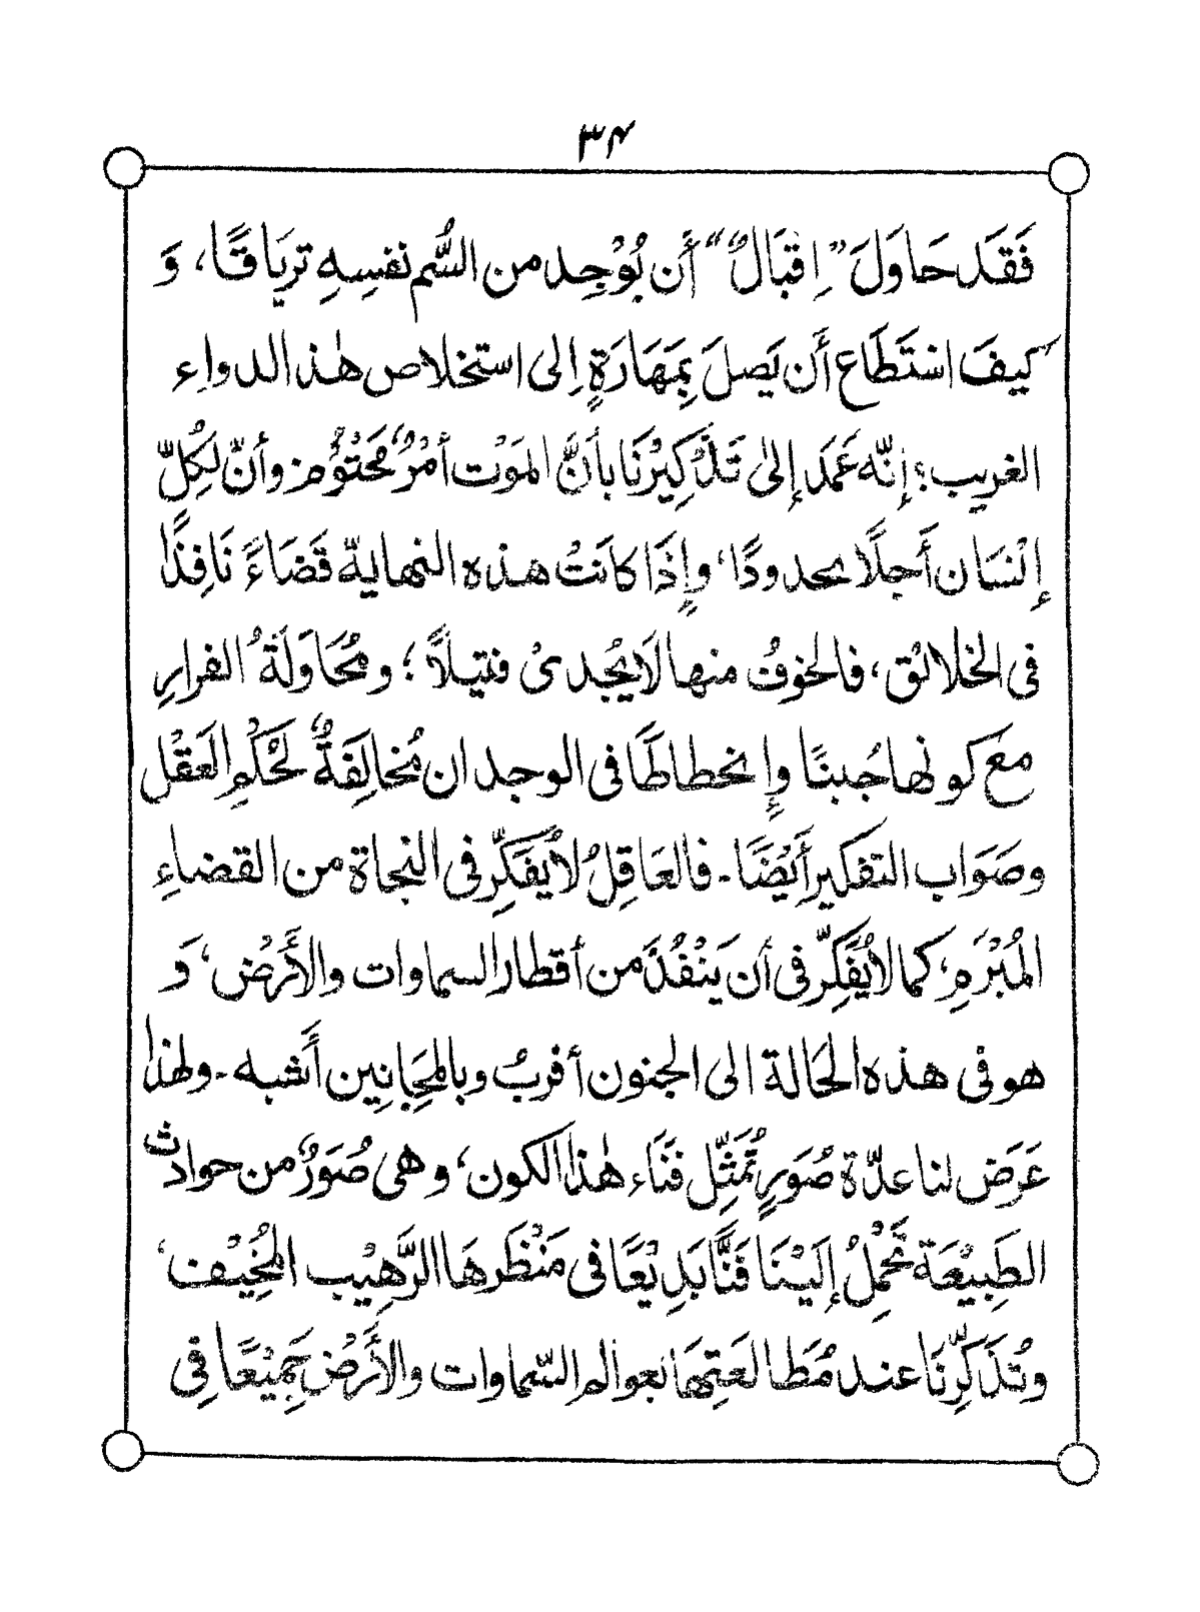 ٣٤
فَقَد حَاوَلَ "اِقْبَالٌ" أَن يُوْجِد من السُّم نفسِهِ تريَاقًا، وَ
كيفَ اسْتَطَاع أَن يَصلَ بِمَهَارَةٍ اِلى استخلاص هٰذ الدواءِ
الغريب؛ إنّه عَمَدَ إلىٰ تَذْكِيْرنَا بأَنَّ المَوْت أمْرٌ مَحتُوْم وأنّ لكُلِّ
إنْسَان أَجلًا محدودًا، وإِذَا كانَتْ هذه النهايةّ قَضَاءً نَافِذًا
فى الخلائق، فالخوفُ منها لَا يُجْدىْ فتيلاً؛ ومُحَاوَلَةُ الفرارِ
معَ كونها جُبنًا وإِنحطاطًا فى الوجدان مُخالِفَةٌ لحُكْمِ العَقْل
وصَوَاب التفكير أَيْضًا۔ فالعَاقِلُ لاُيفَكِّر فى النجاة من القضاءِ
المُبْرَمِ، كما لاُيفَكِّر فى أن يَنْفُذَ من أقطار السماوات والأَرْض، وَ
هو فى هذه الحَالة الى الجنون أقربُ وبالمجَانِين أَشبه۔ ولهٰذا
عَرَض لنا عدّة صُوَرٍ تُمَثِّل فَنَاء هٰذا الكون، وهى صُوَرٌ من حوادث
الطَبِيْعَة تَحْمِلُ إلَيْنَا فَنًّا بَدِيْعًا فى مَنْظَرهَا الرَّهِيْب المُخِيْف،
وتُذَكِّرنَا عند مُطَالعَتِهَا بعوالم السّماوات والأَرْض جَمِيْعًا فِى